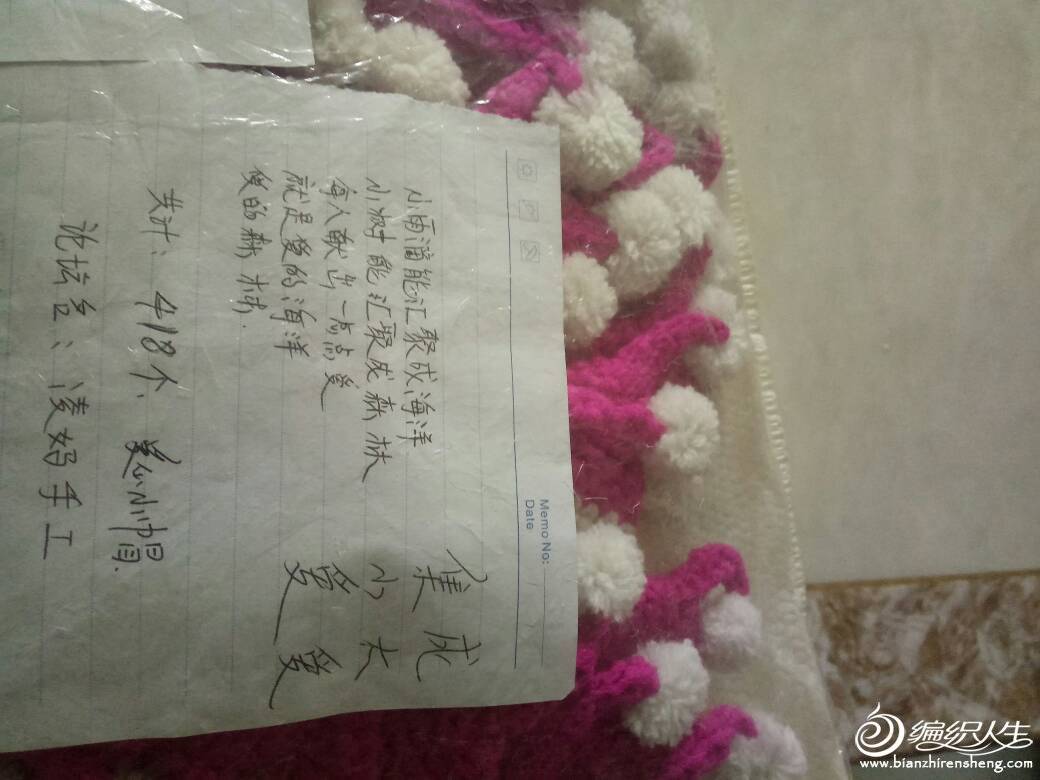 Memo No:
Date
集小爱
成大爱
小雨滴能汇聚成海洋
小树能汇聚成森林
每人献出一点点爱
就是爱的海洋
爱的森林.
共计: 418个, 爱心小帽.
论坛名: 凌妈手工
编织人生
www.bianzhirensheng.com